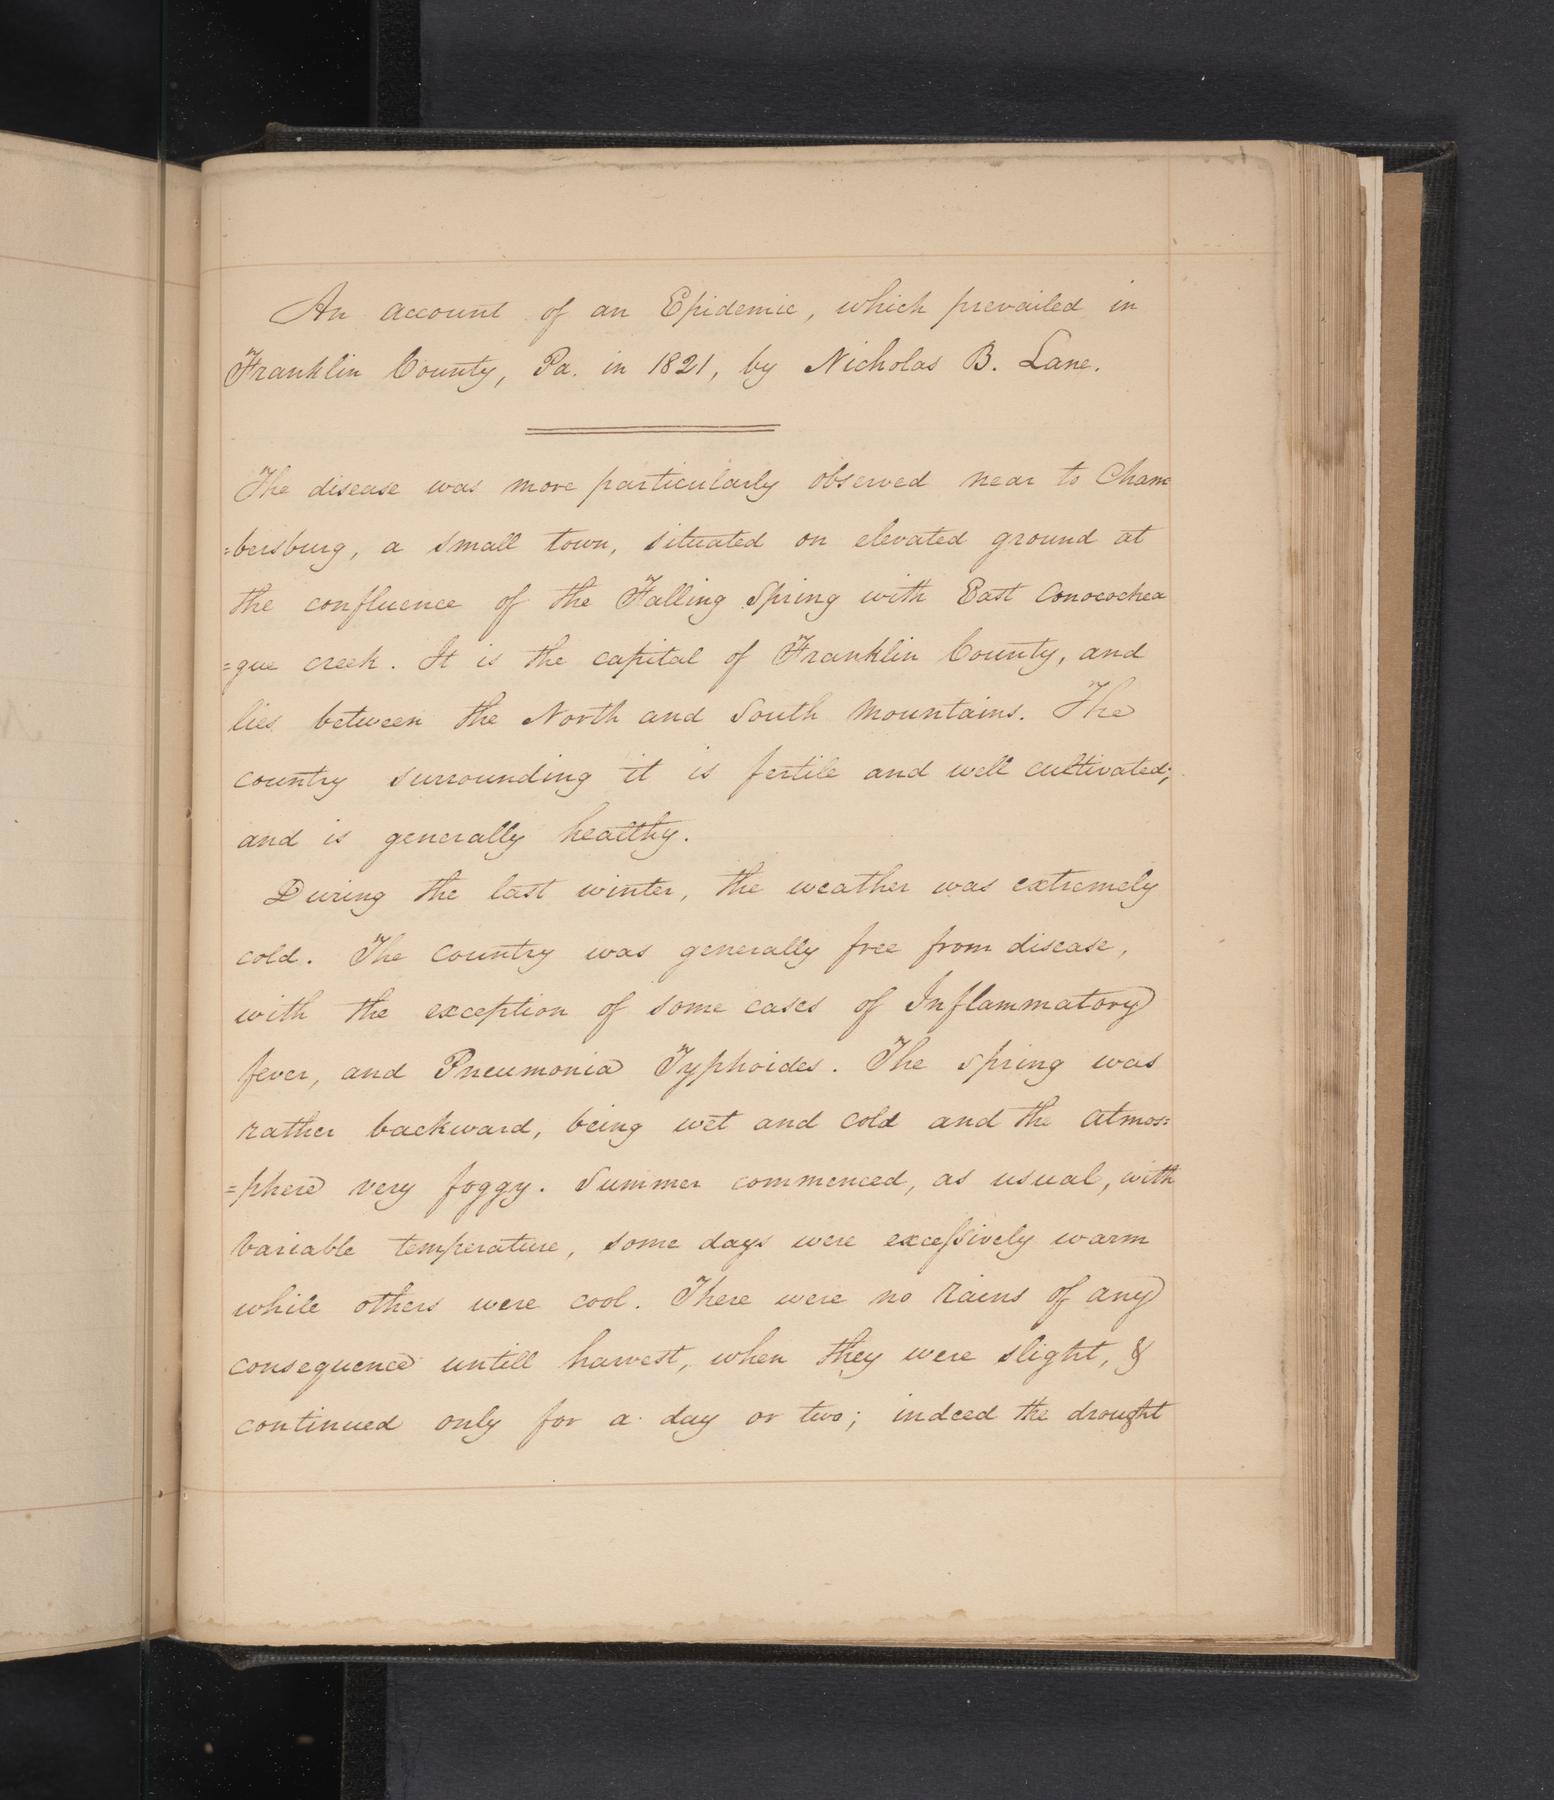 An account of an Epidemic, which prevailed in
Franklin County, Pa. in 1821, by Nicholas B. Lane.
The disease was more particularly observed near to Cham
=bersburg, a small town, situated on elevated ground at
the confluence of the Falling Spring with East Conocochea
=gue creek. It is the capital of Franklin County, and
lies between the North and South Mountains. The
country surrounding it is fertile and well cultivated;
and is generally healthy.
During the last winter, the weather was extremely
cold. The country was generally free from disease,
with the exception of some cases of Inflammatory
fever, and Pneumonia Typhoides. The spring was
rather backward, being wet and cold and the atmos=
=phere very foggy. Summer commenced, as usual, with
variable temperature, some days were excessively warm
while others were cool. There were no rains of any
consequence untill harvest, when they were slight, &
continued only for a day or two; indeed the drought